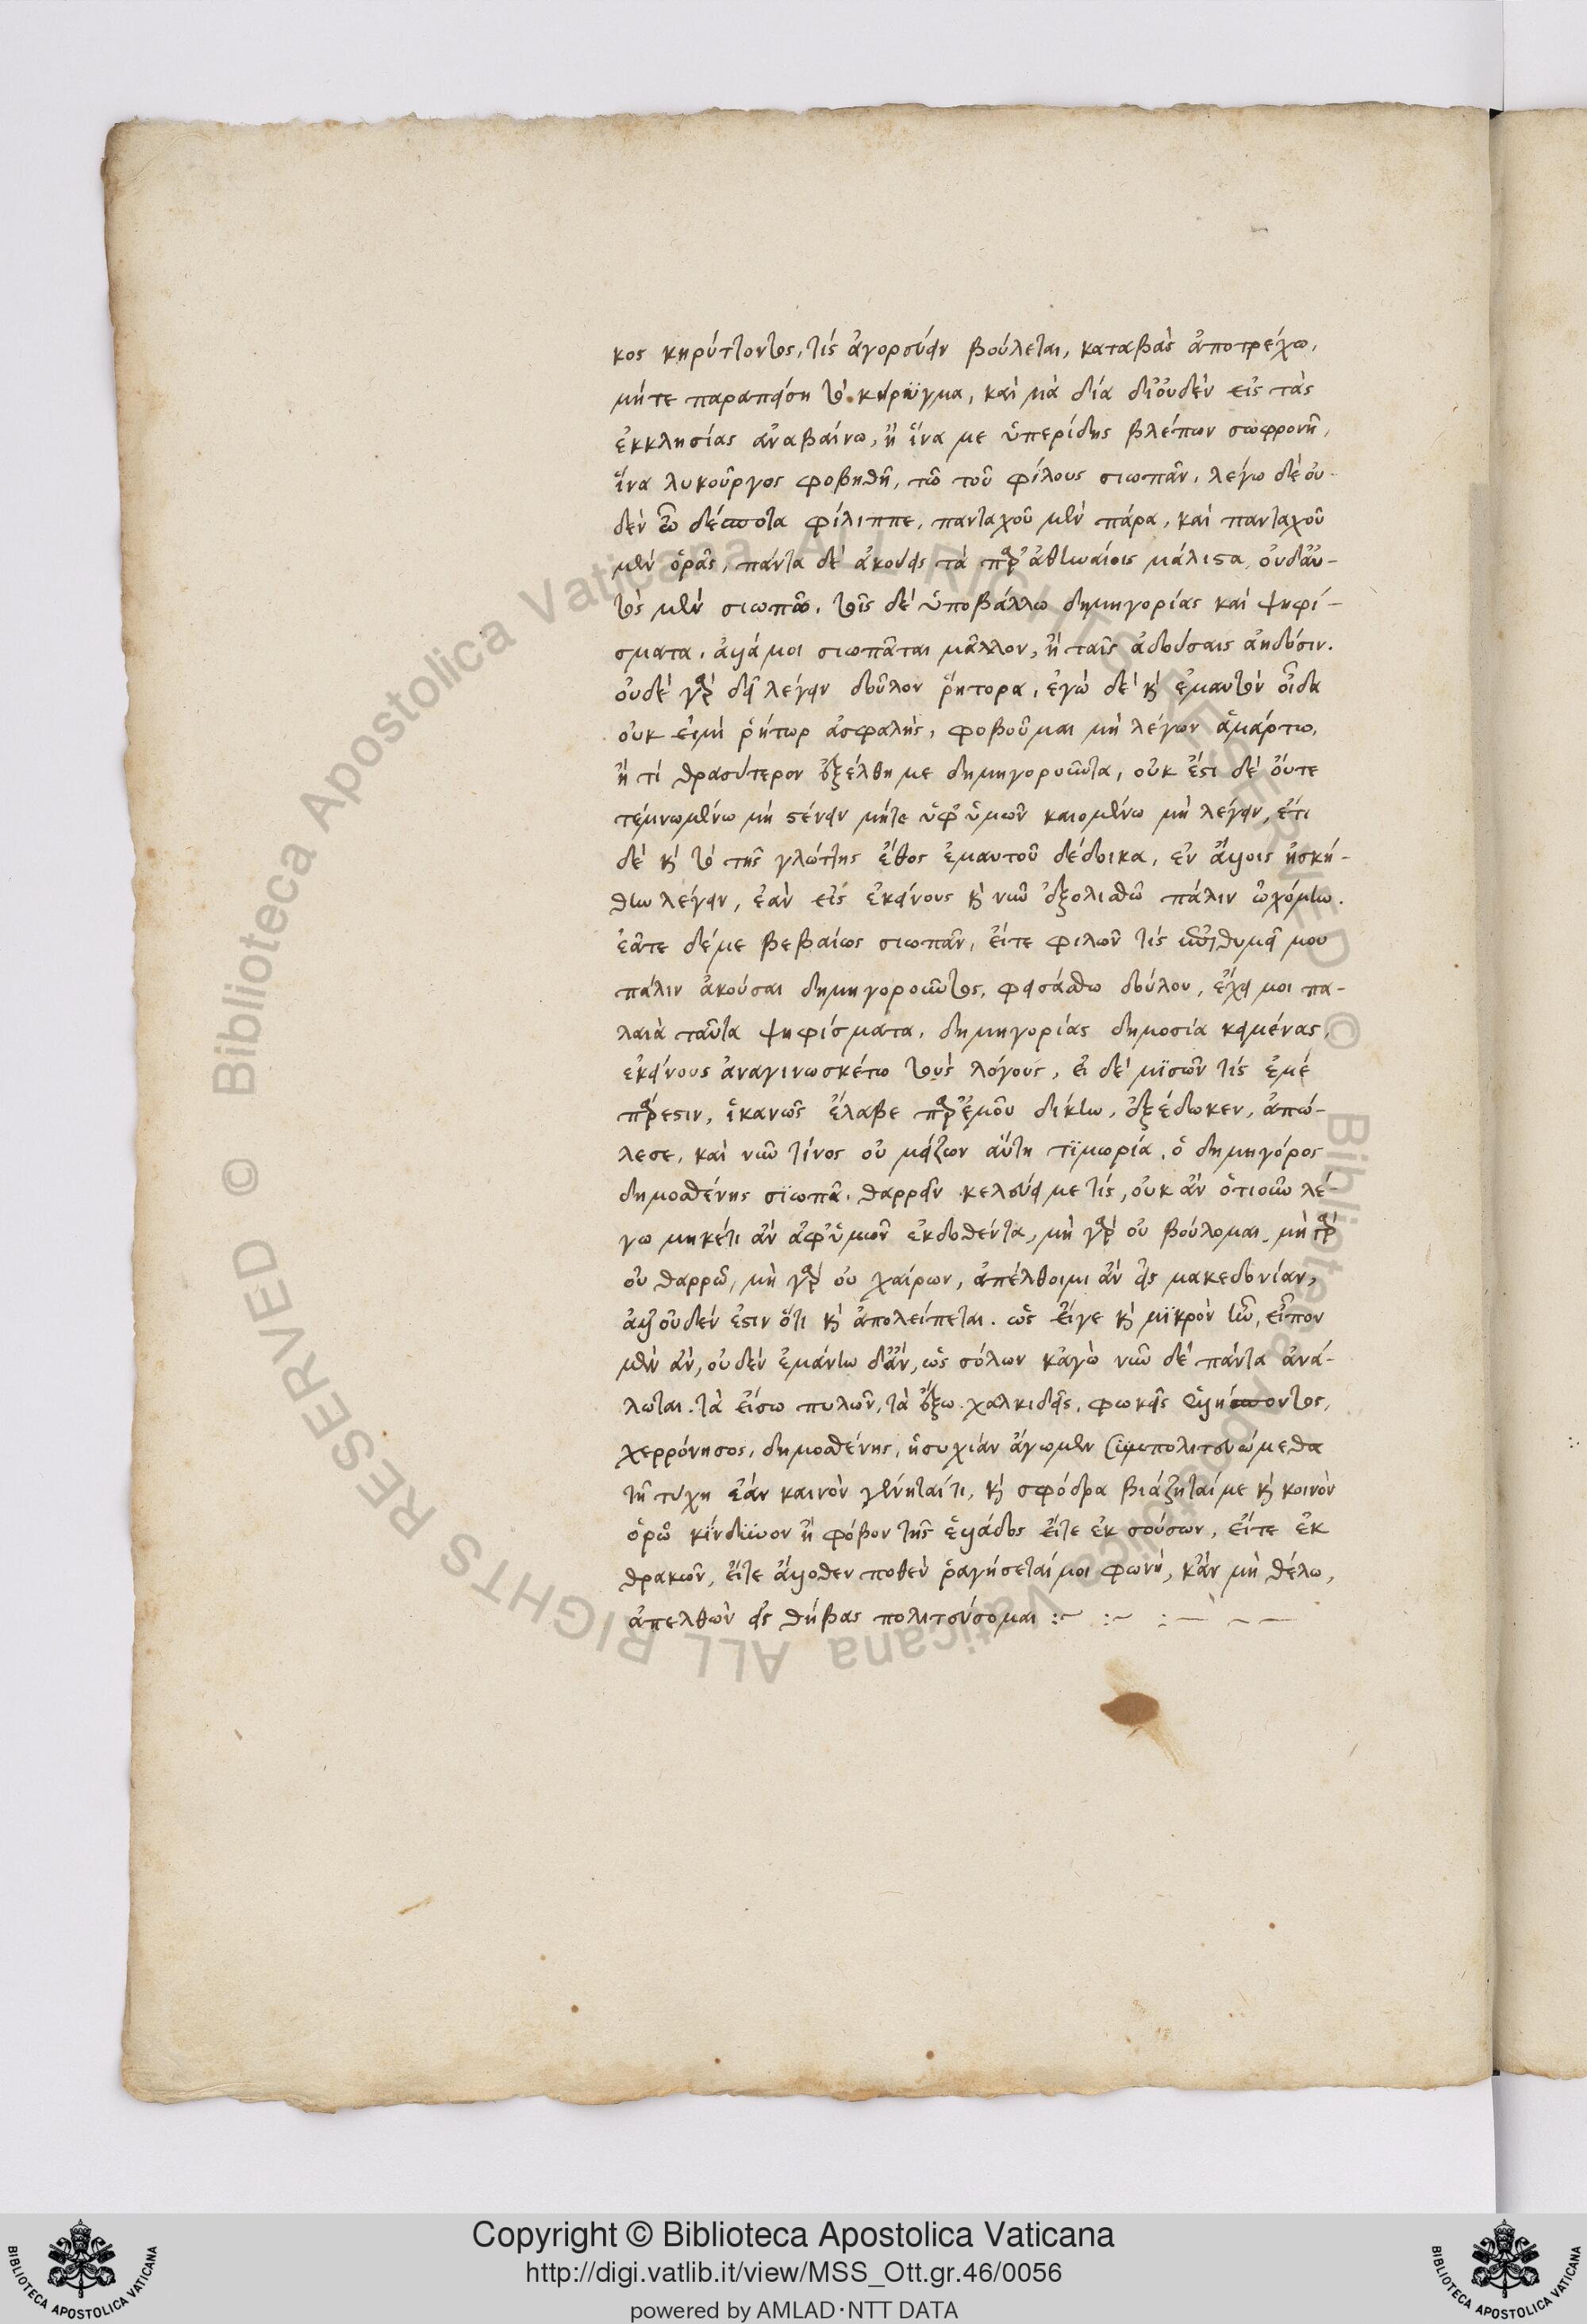 κος κηρύττοντος, τίς ἀγορεύειν βούλεται, καταβὰς ἀποτρέχω,
μήτε παραπαίση τὸ κήρυγμα, καὶ μὰ δία δι᾽ οὐδὲν εἰς τὰς
ἐκκλησίας ἀναβαίνω, ἢ ἵνα με ὑπερίδης βλέπων σωφρονῆ,
ἵνα λυκοῦργος φοβηθῆ, τῶ τοῦ φίλους σιωπᾶν, λέγω δὲ οὐ-
δὲν ὦ δέσποτα φίλιππε, πανταχοῦ μὲν πάρα, καὶ πανταχοῦ
μὲν ὁρᾶς, πάντα δὲ ἀκούεις τὰ παρ᾽ ἀθηναίοις μάλιστα, οὐδ᾽ αὐ-
τὸς μὲν σιωπῶ, τοῖς δὲ ὑποβάλλω δημηγορίας καὶ ψηφί-
σματα. ἀλλά μοι σιωπᾶται μᾶλλον, ἢ ταῖς ἀδούσαις ἀηδόσιν.
οὐδὲ γὰρ δεῖ λέγειν δοῦλον ῥήτορα, ἐγὼ δὲ καὶ ἐμαυτὸν οἶδα
οὐκ εἰμὴ ῥήτωρ ἀσφαλὴς, φοβοῦμαι μὴ λέγων ἁμάρτω,
ἤ τί θρασύτερον ἐξέλθη με δημηγοροῦντα, οὐκ ἔστι δὲ οὔτε
τεμνωμένω μὴ στένειν μήτε ὑφ᾽ ὑμῶν καιομένω μὴ λέγειν, ἔτι
δὲ καὶ τὸ τῆς γλώττης ἔθος ἐμαυτοῦ δέδοικα, ἐν ἄλλοις ἠσκή-
θην λέγειν, ἐὰν εἰς ἐκείνους καὶ νῦν ἐξολισθῶ πάλιν ᾠχόμην.
ἐᾶτε δέ με βεβαίως σιωπᾶν, εἴτε φιλῶν τίς ἐπιθυμεῖ μου
πάλιν ἀκοῦσαι δημηγοροῦντος, φεισάσθω δούλου, ἔχει μοι πα-
λαιὰ ταῦτα ψηφίσματα, δημηγορίας δημοσία κειμένας,
ἐκείνους ἀναγινωσκέτω τοὺς λόγους, εἰ δὲ μισῶν τίς ἐμέ
πάρεστιν, ἱκανῶς ἔλαβε παρ᾽ ἐμοῦ δίκην, ἐξέδωκεν, ἀπώ-
λεσε, καὶ νῦν τίνος οὐ μείζων αὕτη τιμωρία, ὁ δημηγόρος
δημοσθένης σιωπᾶ. θαρρεῖν κελεύει με τίς, οὐκ ἂν ὁτιοῦν λέ-
γω μηκέτι ἂν ἀφ᾽ ὑμῶν ἐκδοθέντα, μὴ γὰρ οὐ βούλομαι, μὴ γὰρ
οὐ θαρρῶ, μὴ γὰρ οὐ χαίρων, ἀπέλθοιμι ἂν εἰς μακεδονίαν,
ἀλλ᾽ οὐδέν ἐστιν ὅτι καὶ ἀπολείπεται. ὡς εἴγε καὶ μικρὸν ἦν, εἶπον
μὲν ἂν, οὐδὲν ἐμάνην δ᾽ ἂν, ὡς σόλων κἀγὼ νῦν δὲ πάντα ἀνά-
λωται. τὰ εἴσω πυλῶν, τὰ ἔξω. χαλκιδεῖς, φωκεῖς ἑλλήσποντος,
χερρόνησος, δημοσθένης, ἡσυχίαν ἄγωμεν συμπολιτευώμεθα
τῆ τύχη ἐὰν καινὸν γένηταί τι, καὶ σφόδρα βιάζηταί με καὶ κοινὸν
ὁρῶ κίνδυνον ἢ φόβον τῆς ἑλλάδος εἴτε ἐκ σούσων, εἴτε ἐκ
θρακῶν, εἴτε ἄλλοθεν ποθὲν ῥαγήσεταί μοι φωνὴ, κἂν μὴ θέλω,
ἀπελθὼν εἰς θήβας πολιτεύσομαι :~ :~ :— ~ —
Copyright © Biblioteca Apostolica Vaticana
http://digi.vatlib.it/view/MSS_Ott.gr.46/0056
powered by AMLAD･NTT DATA
BIBLIOTECA APOSTOLICA VATICANA
BIBLIOTECA APOSTOLICA VATICANA
© Biblioteca Apostolica Vaticana ALL RIGHTS RESERVED
© Biblioteca Apostolica Vaticana ALL RIGHTS RESERVED